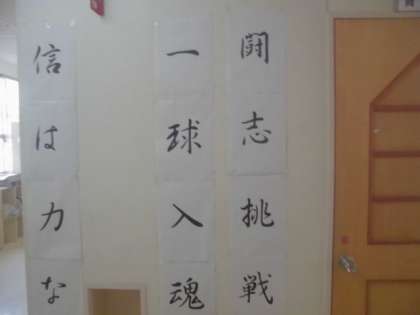 闘志挑戦
一球入魂
信は力な